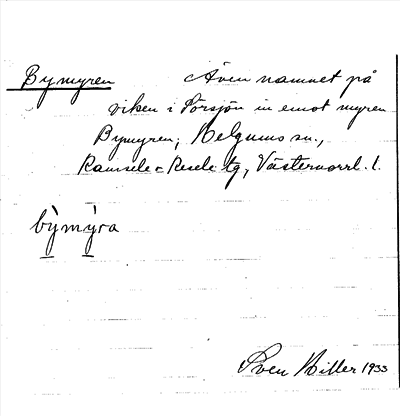 Bymyren Även namnet på
viken i Torsjön in emot myren
Bymyren, Helgums sn.,
Ramsele o Resele tg, Västernorrl. l.
bỳmỳra
Sven Hiller 1933